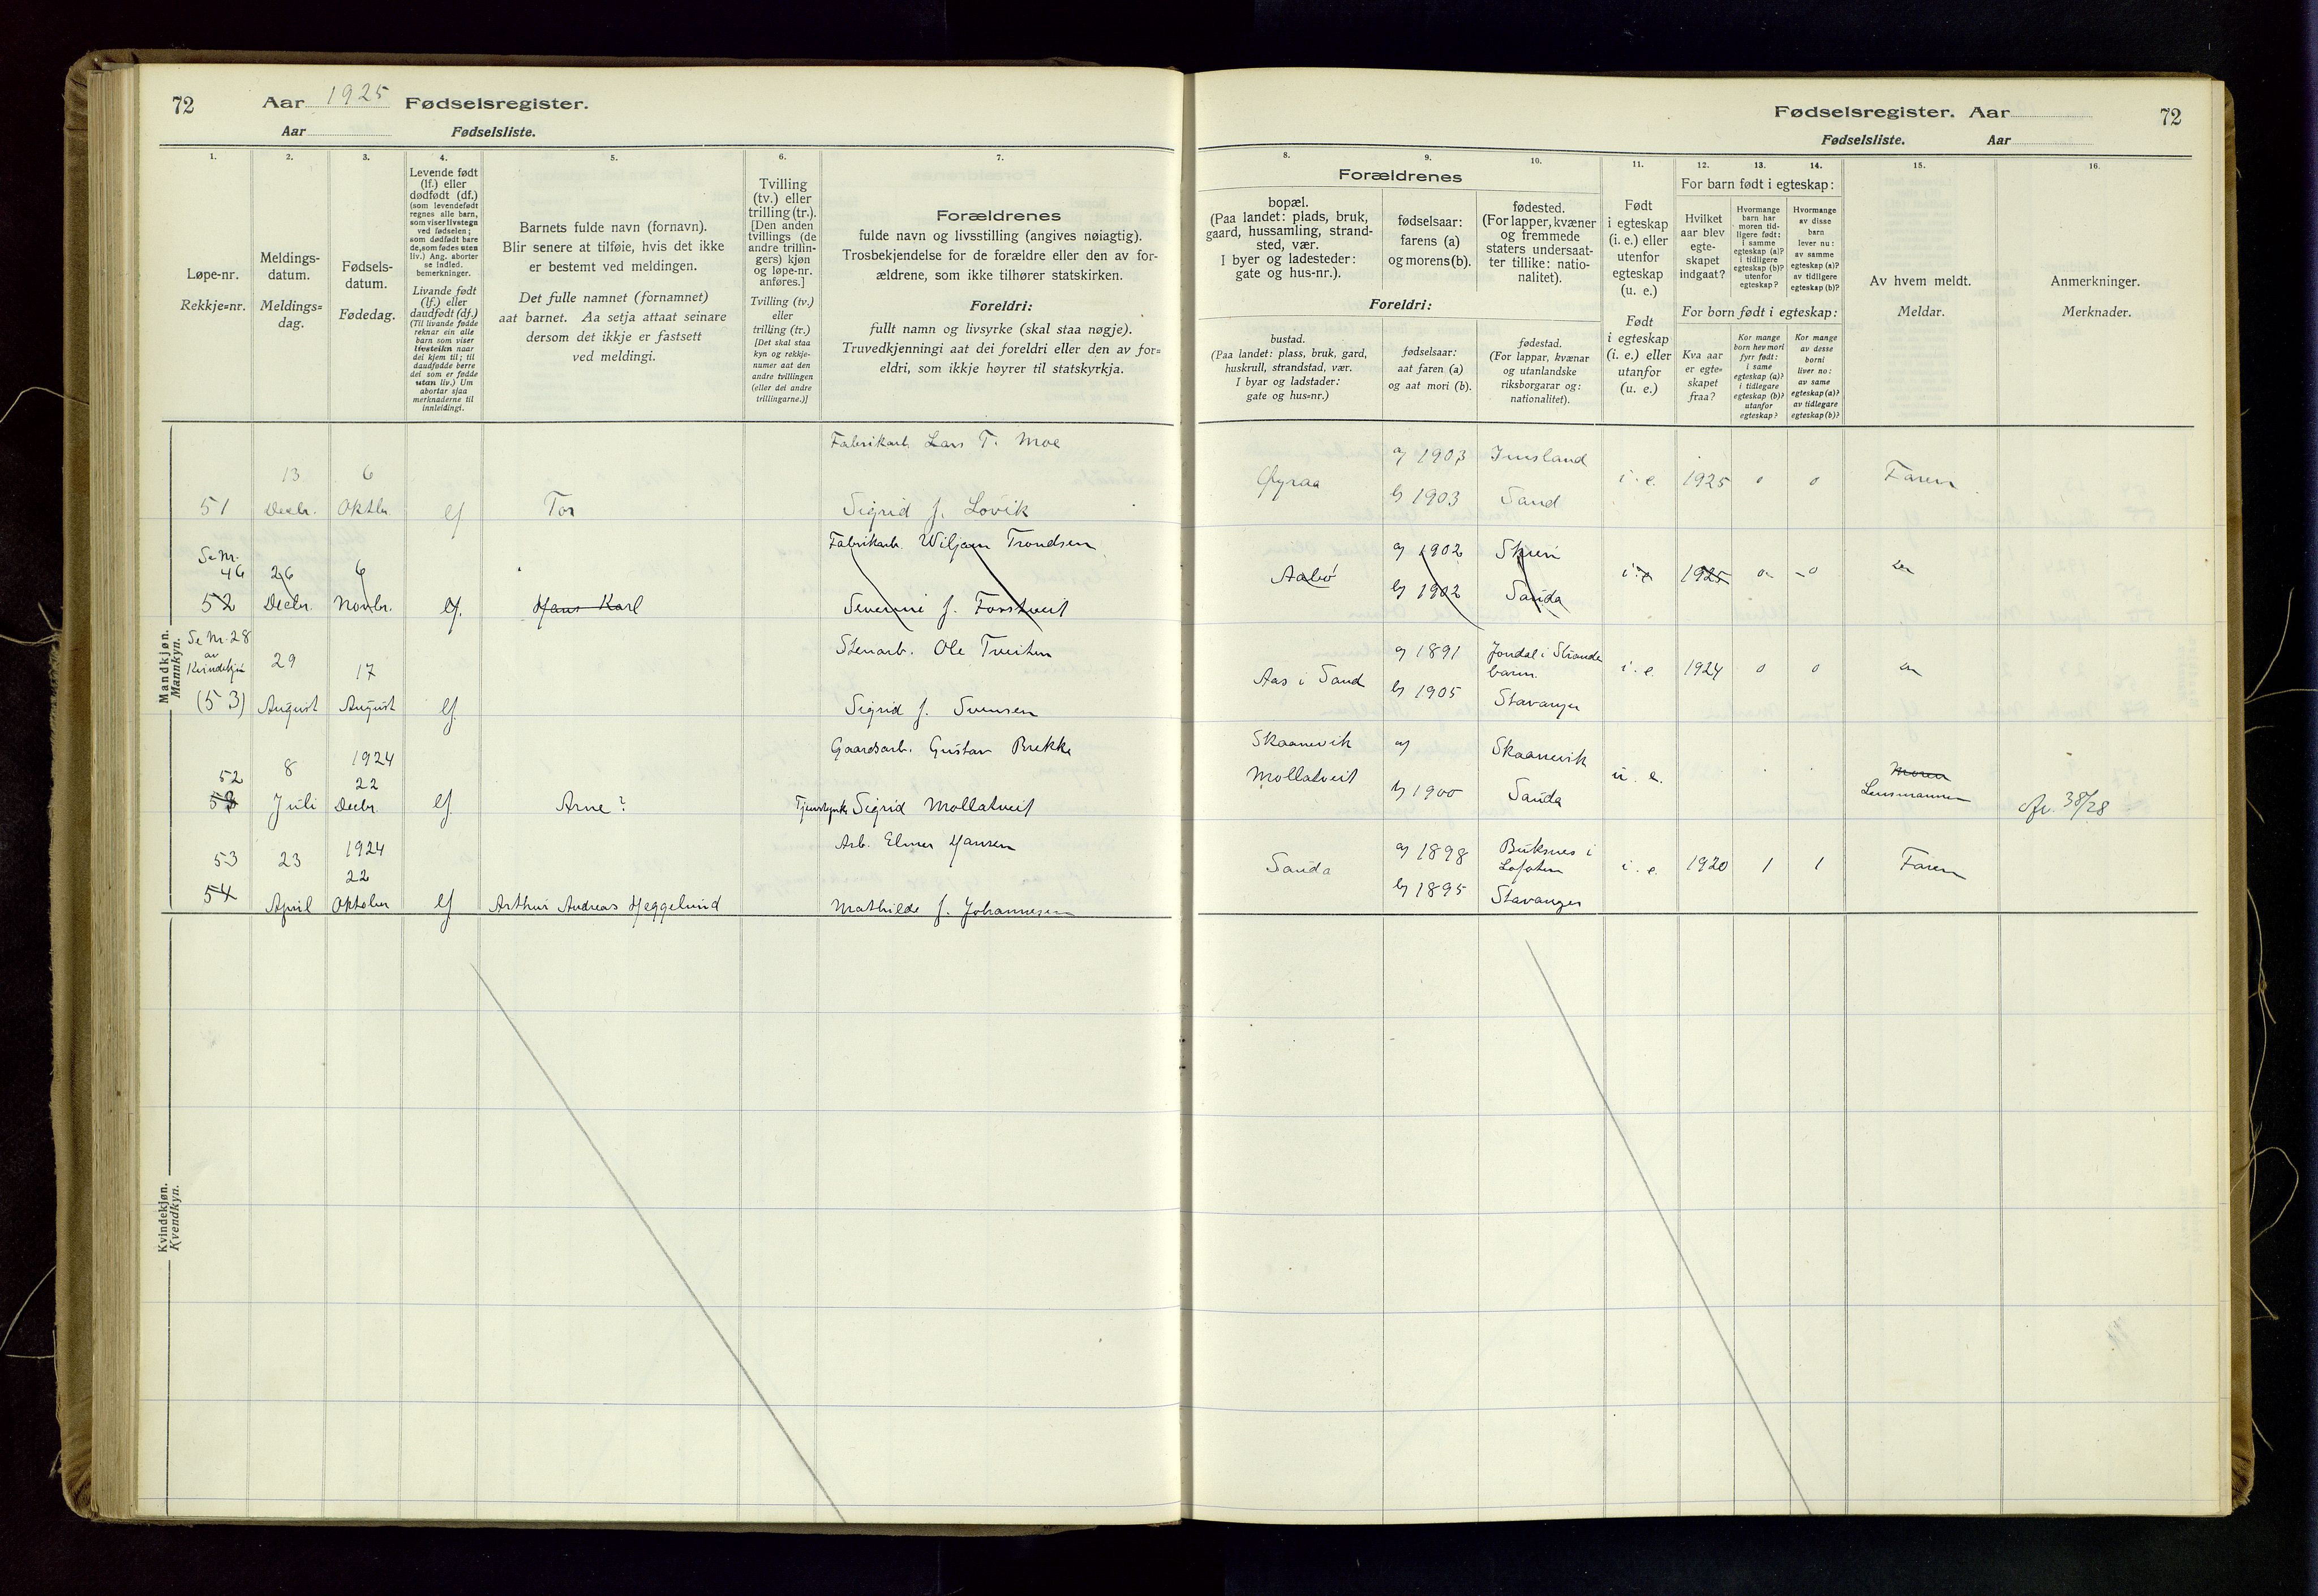 72
Aar 1925 Fødselsregister.
Aar Fødselsliste.
1.
2.
3.
4.
5.
6.
7.
Løpe-nr.
Rekkje=nr.
Meldings-
datum.
Meldings=
dag.
Fødsels-
datum.
Fødedag.
Levende født
(lf.) eller
dødfødt (df.)
(som levendefødt
regnes alle barn,
som viser livstegn
ved fødselen;
som dødfødt bare
de, som fødes uten
liv.) Ang. aborter
se indled.
bemerkninger.
Livande født
(lf.) eller
daudfødt (df.)
(Til livande fødde
reknar ein alle
barn som viser
livsteikn naar
dei kjem til; til
daudfødde berre
dei som er fødde
utan liv.) Um
abortar sjaa
merknaderne til
innleidingi.
Barnets fulde navn (fornavn).
Blir senere at tilføie, hvis det ikke
er bestemt ved meldingen.
Det fulle namnet (fornamnet)
aat barnet. Aa setja attaat seinare
dersom det ikkje er fastsett
ved meldingi.
Tvilling
(tv.) eller
trilling (tr.).
[Den anden
tvillings (de
andre trillin-
gers) kjøn
og løpe-nr.
anføres.]
Tvilling (tv.)
eller
trilling (tr.)
[Det skal staa
kyn og rekkje-
numer aat den
andre tvillingen
(eller dei andre
trillingarne.)]
Forældrenes
fulde navn og livsstilling (angives nøiagtig).
Trosbekjendelse for de forældre eller den av for-
ældrene, som ikke tilhører statskirken.
Foreldri:
fullt namn og livsyrke (skal staa nøgje).
Truvedkjenningi aat dei foreldri eller den av for=
eldri, som ikkje høyrer til statskyrkja.
Mandkjøn.
Mannkyn.
Fabrikarb. Lars T. Moe
13 6
51 Decbr. Oktbr lf Tor Sigrid f. Løvik
Se Nr.
46 26 6 Fabrikarb. Wiljam Trondsen
52 Decbr. Novbr. lf. Hans Karl Severine f. Fosstveit
Se Nr. 28
av
Kvindekjøn 29 17 Stenarb. Ole Tveiten
(53) August August lf. Sigrid f. Svensen
1924 Gaardsarb. Gustav Brekke
52 8 22
53 Juli Decbr. lf Arne? Sigrid Mollatveit
1924 Arb. Elmer Hansen
53 23 22
54 April Oktober lf Arthur Andreas Heggelund Mathilde f. Johannesen
Kvindekjøn.
Kvendkyn.
Fødselsregister. Aar
72
Fødselsliste. Aar
8.
9.
10.
11.
12.
13.
14.
15.
16.
Forældrenes
bopæl.
(Paa landet: plads, bruk,
gaard, hussamling, strand-
sted, vær.
I byer og ladesteder:
gate og hus-nr.).
fødselsaar:
farens (a)
og morens (b).
fødested.
(For lapper, kvæner
og fremmede
staters undersaat-
ter tillike: natio-
nalitet).
Foreldri:
bustad.
(Paa landet: plass, bruk, gard,
huskrull, strandstad, vær.
I byar og ladstader:
gate og hus-nr.)
fødselsaar:
aat faren (a)
og aat mori (b).
fødestad.
(For lappar, kvænar
og utanlandske
riksborgarar og:
nationalitet).
Født
i egteskap
(i. e.) eller
utenfor
egteskap
(u. e.)
Født
i egteskap
(i. e.) eller
utanfor
(u. e.)
For barn født i egteskap:
Hvilket
aar blev
egte-
skapet
indgaat?
Hvormange
barn har
moren tid-
ligere født:
i samme
egteskap (a)?
i tidligere
egteskap (b)?
utenfor
egteskap?
Hvormange
av disse
barn
lever nu:
av samme
egteskap (a)?
av tidligere
egteskap (b)?
For born født i egteskap:
Kva aar
er egte=
skapet
fraa?
Kor mange
born hev mori
fyrr født:
i same
egteskap (a)?
i tidlegare
egteskap (b)?
utanfor
egteskap?
Kor mange
av desse
borni
liver no:
av same
egteskap (a)?
av tidlegare
egteskap (b)?
Av hvem meldt.
Meldar.
Anmerkninger.
Merknader.
a) 1903 Imsland
Øyraa i. e. 1925 0 0 Faren
b) 1903 Sand
a) 1902
Aabø i. e. 1925 0 0
b) 1902 Sauda
a) 1891 Jondal i Strande
barm.
Aas i Sand i. e. 1924 0 0
b) 1905 Stavanger
Skaanevik a) Skaanevik
Mollatveit u. e. Moren
b) 1900 Sauda Lensmannen 38/28
a) 1898 Buksnes i
Lofoten
Sauda i. e. 1920 1 1 Faren
b) 1895 Stavanger